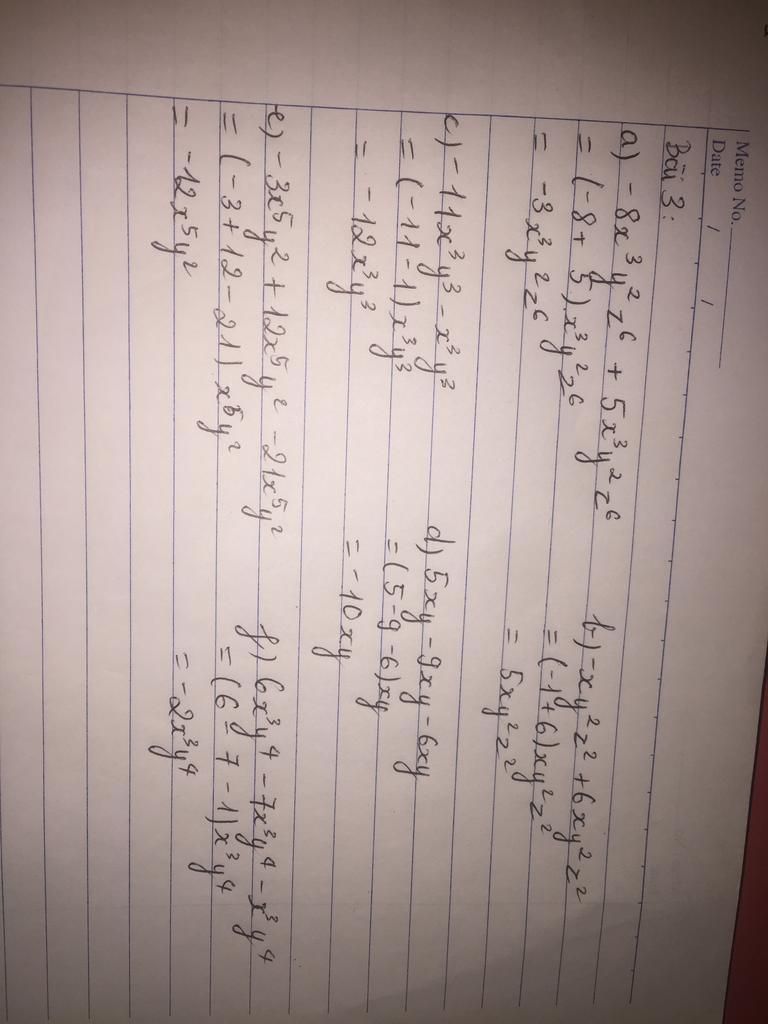 Memo No.
Date / /
Bài 3:
a) -8x³y²z⁶ + 5x³y²z⁶
= (-8 + 5)x³y²z⁶
= -3x³y²z⁶
b) -xy²z² + 6xy²z²
= (-1 + 6)xy²z²
= 5xy²z²
c) -11x³y³ - x³y³
= (-11 - 1)x³y³
= -12x³y³
d) 5xy - 9xy - 6xy
= (5 - 9 - 6)xy
= -10xy
e) -3x⁵y² + 12x⁵y² - 21x⁵y²
= (-3 + 12 - 21)x⁵y²
= -12x⁵y²
f) 6x³y⁴ - 7x³y⁴ - x³y⁴
= (6 - 7 - 1)x³y⁴
= -2x³y⁴